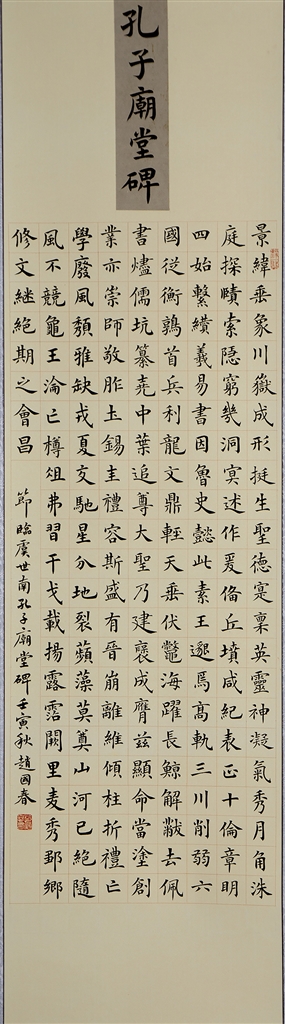 孔子廟堂碑
景緯垂象川嶽成形挺生聖德寔稟英靈神凝氣秀月角洙
庭探賾索隱窮幾洞冥述作爰俻丘墳咸紀表正十倫章明
四始繫纘羲易書因魯史懿此素王邈焉高軌三川削弱六
國從衡鶉首兵利龍文鼎輕天垂伏鼈海躍長鯨解黻去佩
書燼儒坑纂堯中葉追尊大聖乃建襃成膺茲顯命當塗創
業亦崇師敬胙土錫圭禮容斯盛有晉崩離維傾柱折禮亡
學廢風頹雅缺戎夏交馳星分地裂蘋藻莫奠山河已絕隨
風不競龜玉淪亡樽俎弗習干戈載揚露霑闕里麦秀鄒鄉
修文継絕期之會昌
節臨虞世南孔子廟堂碑壬寅秋趙國春